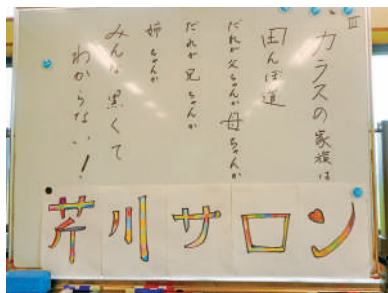 カラスの家族は
田んぼ道
だれが父ちゃんか母ちゃんか
だれが兄ちゃんか
姉ちゃんか
みんな黒くて
わからない!
芹川サロン